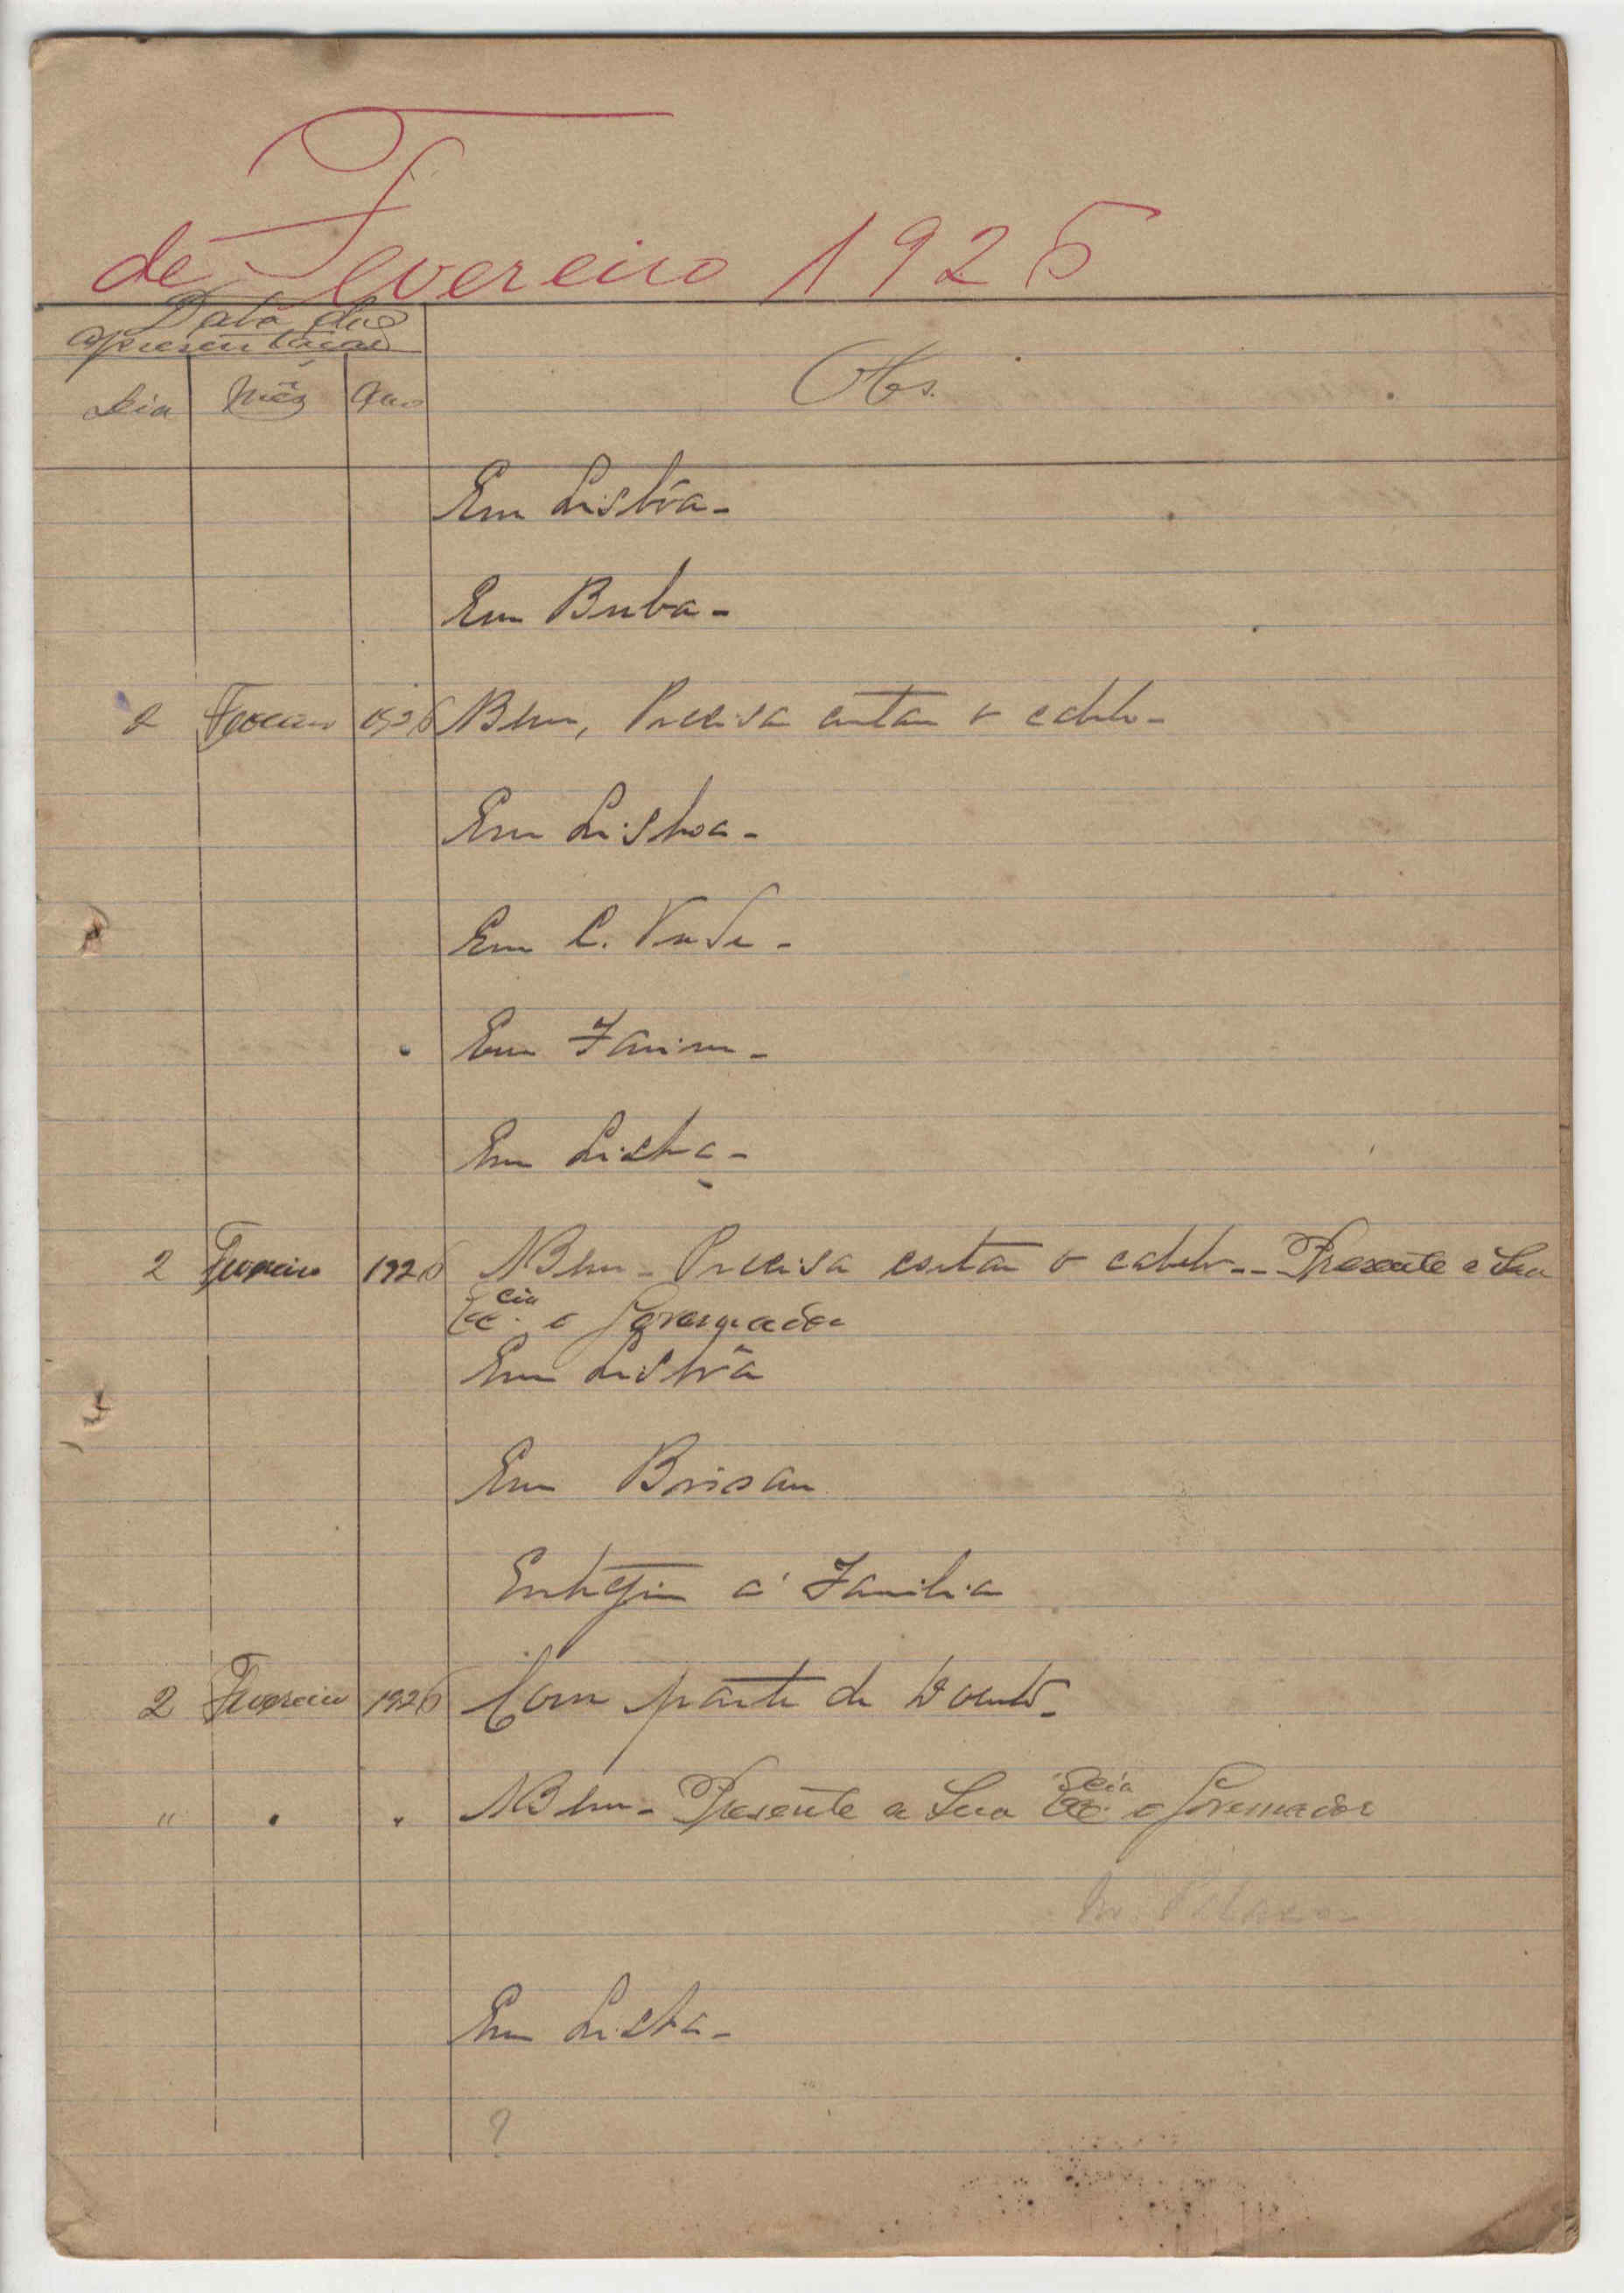 de Fevereiro 1926
Data das
apresentações
Dia Mês Ano Obs.
Em Lisbôa -
Em Buba -
2 Fevereiro 1926 Bem, Precisa cortar o cabelo -
Em Lisboa -
Em C. Verde -
Em Farim -
Em Lisboa -
2 Fevereiro 1926 Bem - Precisa cortar o cabelo -- Presente a Sua
Excia. o Governador
Em Lisbôa
Em Bissau
Entregue á Familia
2 Fevereiro 1926 Com parte de doente -
" " " Bem - Presente a Sua Excia. o Governador
Em Lisboa -
?